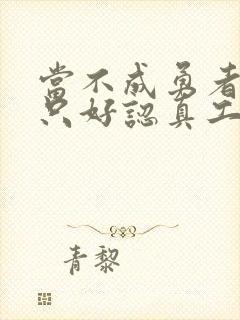 當不成勇者
只好認真工
青黎